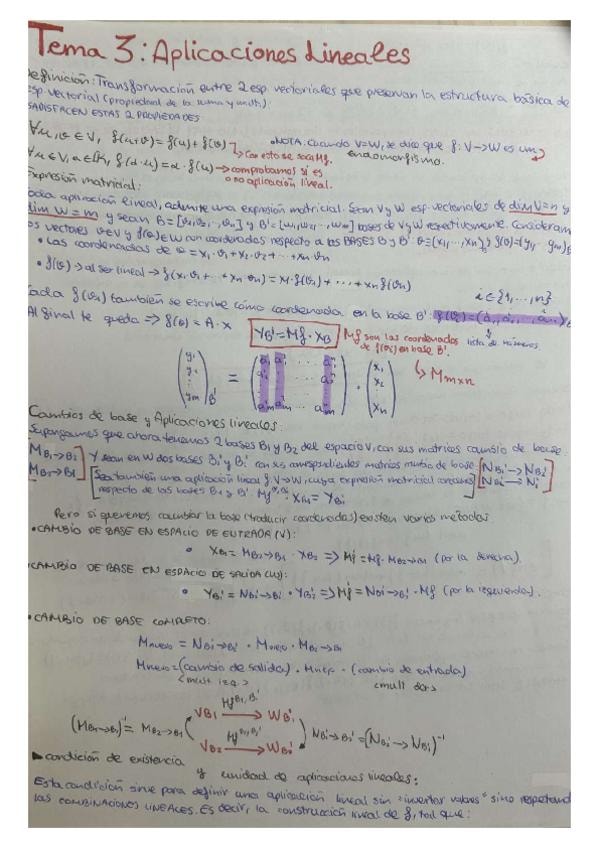 Tema 3: Aplicaciones Lineales
Definición: Transformación entre 2 esp. vectoriales que preservan la estructura básica de
esp. vectorial (propiedad de la suma y mult.)
SATISFACEN ESTAS 2 PROPIEDADES
∀u,v ∈ V, f(u+v) = f(u) + f(v)
•NOTA: cuando V=W, se dice que f: V→W es un
endomorfismo.
→ Con esto se saca Mf.
∀u ∈ V, α ∈ ℝ, f(α·u) = α·f(u) → comprobamos si es
o no aplicación lineal.
Expresión matricial:
Toda aplicación lineal, admite una expresión matricial. Sean V y W esp. vectoriales de dim V=n y
dim W = m y sean B = [v1, v2, ..., vn] y B' = [w1, w2, ..., wm] bases de V y W respectivamente. Consideram
los vectores v∈V y f(v)∈W con coordenadas respecto a las BASES B y B': v=(x1, ..., xn)B y f(v)=(y1, ... ym)B'
• Las coordenadas de v = x1·v1 + x2·v2 + ... + xn·vn
• f(v) → al ser lineal → f(x1·v1 + ... + xn·vn) = x1·f(v1) + ... + xn f(vn)
i ∈ {1, ..., n}
Cada f(vi) también se escribe como coordenada en la base B': f(vi) = (a1i, a2i, ..., ami)B'
lista de números
Al final te queda ⇒ f(v) = A·x
YB' = Mf · XB
Mf son las coordenadas
de f(vi) en base B'.
→ Mmxn
Cambios de base y Aplicaciones lineales:
Supongamos que ahora tenemos 2 bases B1 y B2 del espacio V, con sus matrices cambio de base.
MB1→B2
MB2→B1
Y sean en W dos bases B1' y B2' con sus correspondientes matrices cambio de base
Sea también una aplicación lineal f: V→W, cuya expresión matricial conocemos
respecto de las bases B1 y B1'
Pero si queremos cambiar la base (traducir coordenadas) existen varios métodos
•CAMBIO DE BASE EN ESPACIO DE ENTRADA (V):
• XB1 = MB2→B1 · XB2 ⇒ Mf' = Mf · MB2→B1 (por la derecha).
•CAMBIO DE BASE EN ESPACIO DE SALIDA (W):
(por la izquierda).
•CAMBIO DE BASE COMPLETO:
Mnuevo = NB1'→B2' · Mviejo · MB2→B1
Mnuevo = (cambio de salida) · Mviejo · (cambio de entrada)
<mult izq> <mult der>
VB1 → WB1'
(MB1→B2)⁻¹ = MB2→B1
NB1'→B2' = (NB2'→NB1')⁻¹
VB2 → WB2'
►condición de existencia
y unidad de aplicaciones lineales:
Esta condición sirve para definir una aplicación lineal sin "inventar valores" sino respetando
las COMBINACIONES LINEALES. Es decir, la construcción lineal de f, tal que: